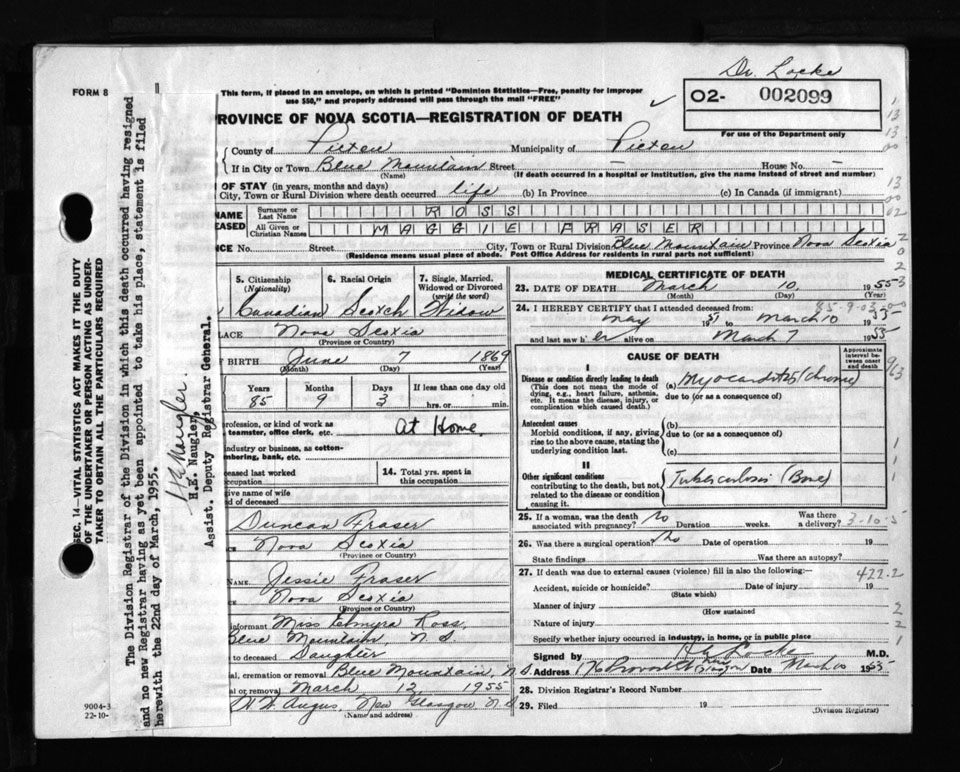 Dr. Locke
FORM 8
This form, if placed in an envelope, on which is printed "Dominion Statistics—Free, penalty for improper
use $50," and properly addressed will pass through the mail "FREE"
O2- 002099
For use of the Department only
ROVINCE OF NOVA SCOTIA—REGISTRATION OF DEATH
County of Pictou Municipality of Pictou
If in City or Town Blue Mountain Street — House No. —
(Name) (If death occurred in a hospital or institution, give the name instead of street and number)
OF STAY (in years, months and days)
City, Town or Rural Division where death occurred life (b) In Province (c) In Canada (if immigrant)
NAME Surname or Last Name ROSS
EASED All Given or Christian Names MAGGIE FRASER
NCE No. Street City, Town or Rural Division Blue Mountain Province Nova Scotia
(Residence means usual place of abode. Post Office Address for residents in rural parts not sufficient)
5. Citizenship (Nationality) 6. Racial Origin 7. Single, Married, Widowed or Divorced (write the word)
Canadian Scotch Widow
LACE Nova Scotia
(Province or Country)
F BIRTH June 7 1869
(Month) (Day) (Year)
Years Months Days If less than one day old
85 9 3 hrs. or min.
rofession, or kind of work as
teamster, office clerk, etc. At Home.
ndustry or business, as cotton-
mbering, bank, etc.
ceased last worked
cupation
14. Total yrs. spent in this occupation
give name of wife
nd of deceased
Duncan Fraser
Nova Scotia
(Province or Country)
NAME Jessie Fraser
Nova Scotia
(Province or Country)
nformant Miss Elmyra Ross,
Blue Mountain N S
to deceased Daughter
al, cremation or removal Blue Mountain, N.S.
al or removal March 12, 1955
Angus, New Glasgow N.S
(Name and address)
MEDICAL CERTIFICATE OF DEATH
23. DATE OF DEATH March 10, 1955
(Month) (Day) (Year)
24. I HEREBY CERTIFY that I attended deceased from: 85-9-03
May 19 51 to March 10 1955
and last saw h er alive on March 7 1955
CAUSE OF DEATH
Approximate interval between onset and death
I
Disease or condition directly leading to death
(This does not mean the mode of dying, e.g., heart failure, asthenia, etc. It means the disease, injury, or complication which caused death.)
(a) Myocarditis (chronic)
due to (or as a consequence of)
Antecedent causes
Morbid conditions, if any, giving rise to the above cause, stating the underlying condition last.
(b)
due to (or as a consequence of)
(c)
II
Other significant conditions
contributing to the death, but not related to the disease or condition causing it.
Tuberculosis (Bone)
25. If a woman, was the death associated with pregnancy? No Duration weeks. Was there a delivery? 3-10-5
26. Was there a surgical operation? No Date of operation 19
State findings Was there an autopsy?
27. If death was due to external causes (violence) fill in also the following:— 422.2
Accident, suicide or homicide? Date of injury 19
(State which)
Manner of injury
(How sustained)
Nature of injury
Specify whether injury occurred in industry, in home, or in public place
Signed by Locke M.D.
Address Provost St Date March 10 1955
28. Division Registrar's Record Number
29. Filed 19
(Division Registrar)
SEC. 14—VITAL STATISTICS ACT MAKES IT THE DUTY
OF THE UNDERTAKER OR PERSON ACTING AS UNDER-
TAKER TO OBTAIN ALL THE PARTICULARS REQUIRED
The Division Registrar of the Division in which this death occurred having resigned
and no new Registrar having as yet been appointed to take his place, statement is filed
herewith the 22nd day of March, 1955.
H E Naugler.
H.E. Naugler,
Assist. Deputy Registrar General.
9004-3
22-10-